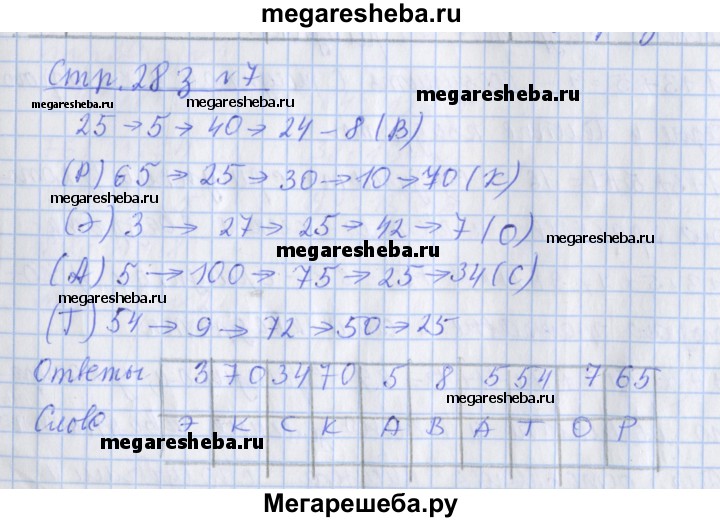 megaresheba.ru
Стр. 28 з №7
megaresheba.ru megaresheba.ru megaresheba.ru
25 → 5 → 40 → 24 - 8 (В)
(Р) 65 → 25 → 30 → 10 → 70 (К)
megaresheba.ru
(Э) 3 → 27 → 25 → 42 → 7 (О)
megaresheba.ru megaresheba.ru
(А) 5 → 100 → 75 → 25 → 34 (С)
megaresheba.ru
(Т) 54 → 9 → 72 → 50 → 25
Ответы 3 70 34 70 5 8 5 54 7 65
megaresheba.ru
Слово Э К С К А В А Т О Р
megaresheba.ru
Мегарешеба.ру